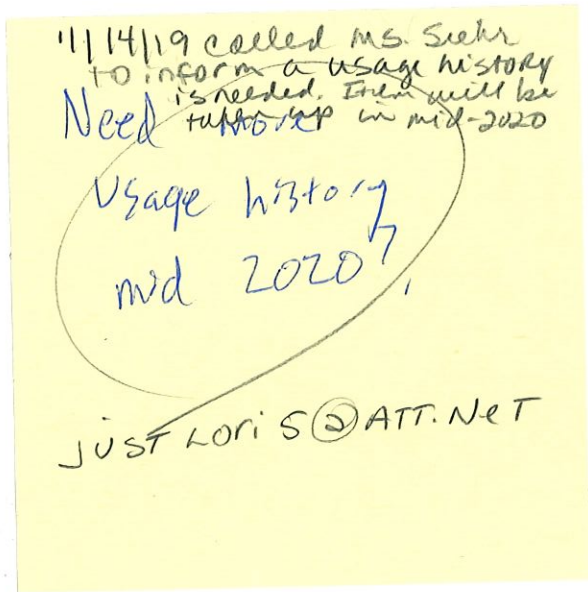 11/14/19 called Ms. Siehr
to inform a usage history
is needed. Item will be
taken up in mid-2020
Need more
usage history
mid 2020?
JUST LORI S@ATT.NET